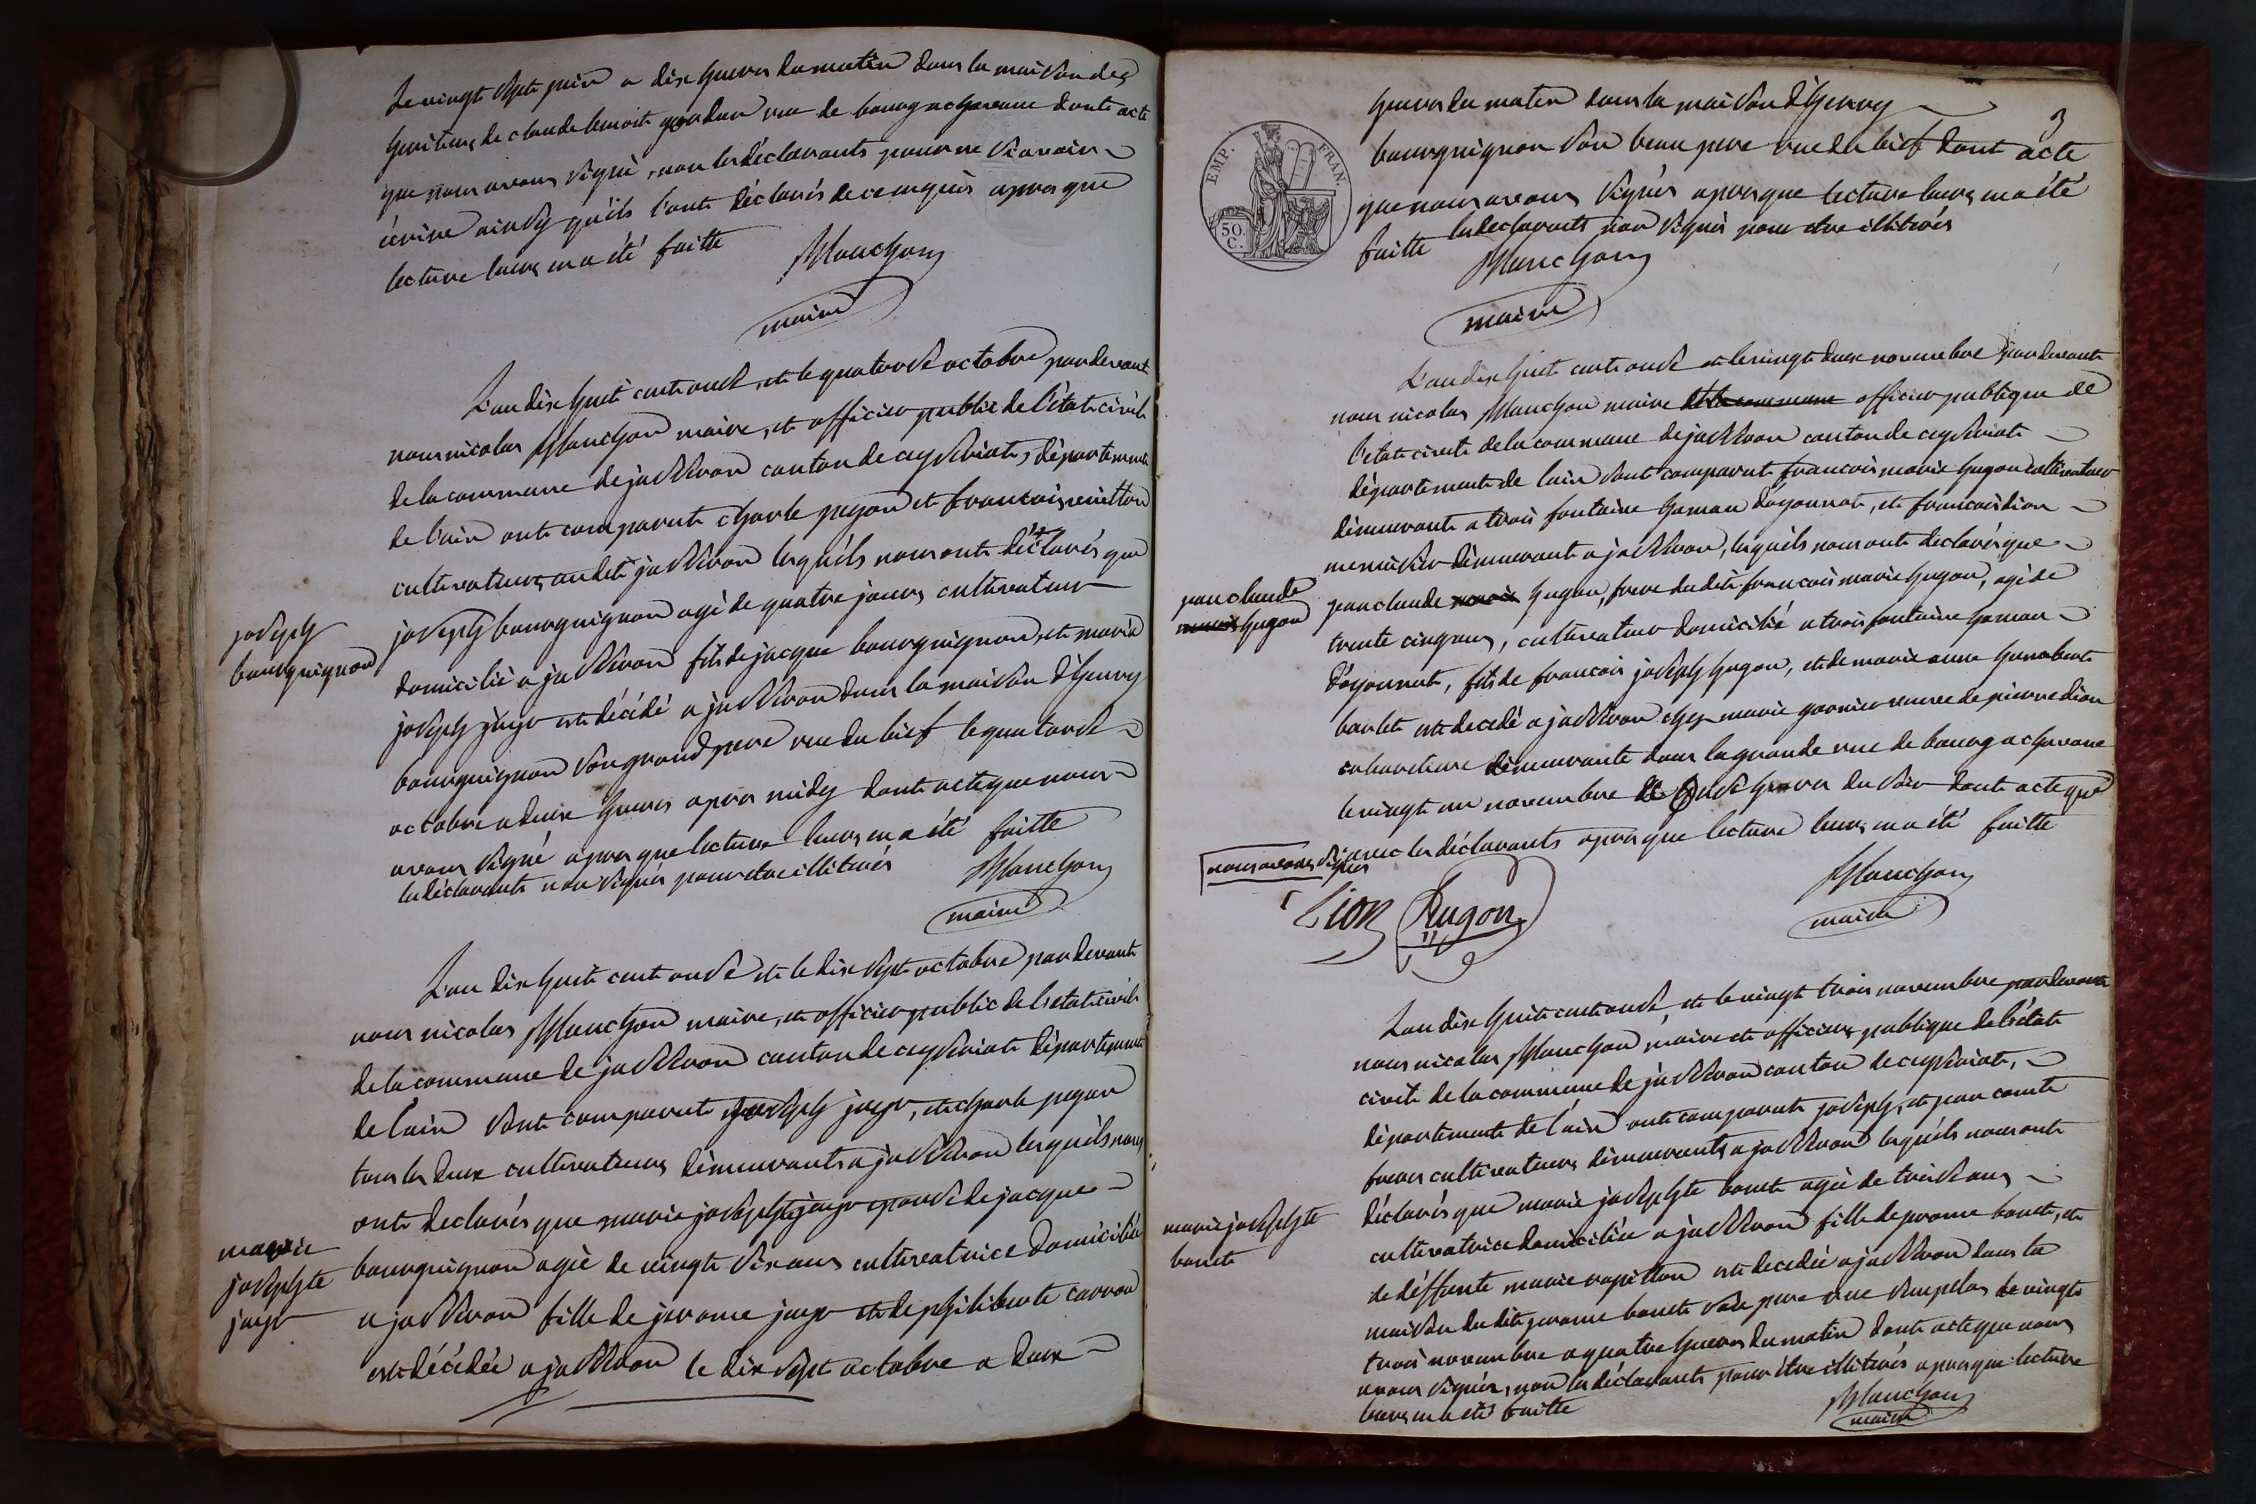 Le vingt sept juin a dix heures du matin dans la maison des
heritiers de claude benoit rue de bourg a chavane dont acte
que nous avons signé, non les déclarants pour ne sçavoir
écrire ainsy qu'ils l'ont déclarés de ce enquis apres que
lecture leurs en a été faitte Planchon
maire
L'an dix huit cent onze, et le quatorze octobre pardevant
nous nicolas Planchon maire, et officier public de l'état civil
de la commune de jasseron canton de ceyseriat, département
de l'ain ont comparut charle pegon et francois
cultivateurs audit jasseron lesquels nous ont déclarés que
joseph
bourguignon
joseph bourguignon agé de quatre jours cultivateur
domicilié a jasseron fils de jacque bourguignon, et marie
joseph jayr est décédé a jasseron dans la maison d'henry
bourguignon son grand pere rue du bief le quatorze
octobre a deux heures apres midy dont acte que nous
avons signé apres que lecture leurs en a été faitte
les déclarants non signés pour etre illitérés Planchon
maire
L'an dix huit cent onze et le dix sept octobre pardevant
nous nicolas Planchon maire, et officier public de l'etat civil
de la commune de jasseron canton de ceyseriat département
de l'ain sont comparut joseph jayr, et charle pegon
tous les deux cultivateurs demeurants a jasseron lesquels nous
ont declarés que marie josephte jayr epouse de jacque
marie
josephte
jayr
bourguignon agée de vingt six ans cultivatrice domiciliée
a jasseron fille de jerome jayr et de philiberte carron
est décédée a jasseron le dix sept octobre a deux
3
EMP. FRAN.
50.
C.
heures du matin dans la maison d'henry
bourguignon son beau pere rue du bief dont acte
que nous avons signés apres que lecture leurs en a été
faitte les declarants non signés pour etre illitérés
Planchon
maire
L'an dix huit cent onze et le vingt deux novembre pardevant
nous nicolas Planchon maire et la commune officier publique de
l'etat civil de la commune de jasseron canton de ceyseriat
département de l'ain sont comparut francois marie hugon cultivateur
demeurant a trois fontaine hamau d'oyonnat, et francois lion
menuisier demeurant a jasseron, lesquels nous ont declarés que
jean claude
marie hugon
jean claude marie hugon, frere du dit francois marie hugon, agé de
trente cinq ans, cultivateur domicilié a trois fontaine hamau
d'oyonnat, fils de francois joseph hugon, et de marie anne
est decedé a jasseron chez marie garnier veuve de pierre lion
cabaretiere demeurante dans la grande rue de bourg a chavane
le vingt un novembre a onze heures du soir dont acte que
nous avons signés avec les déclarants apres que lecture leurs en a été faitte
Planchon
maire
Lion Hugon
L'an dix huit cent onze, et le vingt trois novembre pardevant
nous nicolas Planchon maire et officier publique de l'état
civil de la commune de jasseron canton de ceyseriat,
département de l'ain ont comparut joseph, et jean comte
freres cultivateurs demeurants a jasseron lesquels nous ont
déclarés que marie josephte bouct agée de treize ans
marie josephte
bouct
cultivatrice domiciliée a jasseron fille de jerome bouct, et
de deffunte marie rapillon est decedée a jasseron dans la
maison du dit jerome bouct son pere rue le vingt
trois novembre a quatre heures du matin dont acte que nous
avons signés, non les déclarants pour être illitérés apres que lecture
leurs en a été faitte Planchon
maire